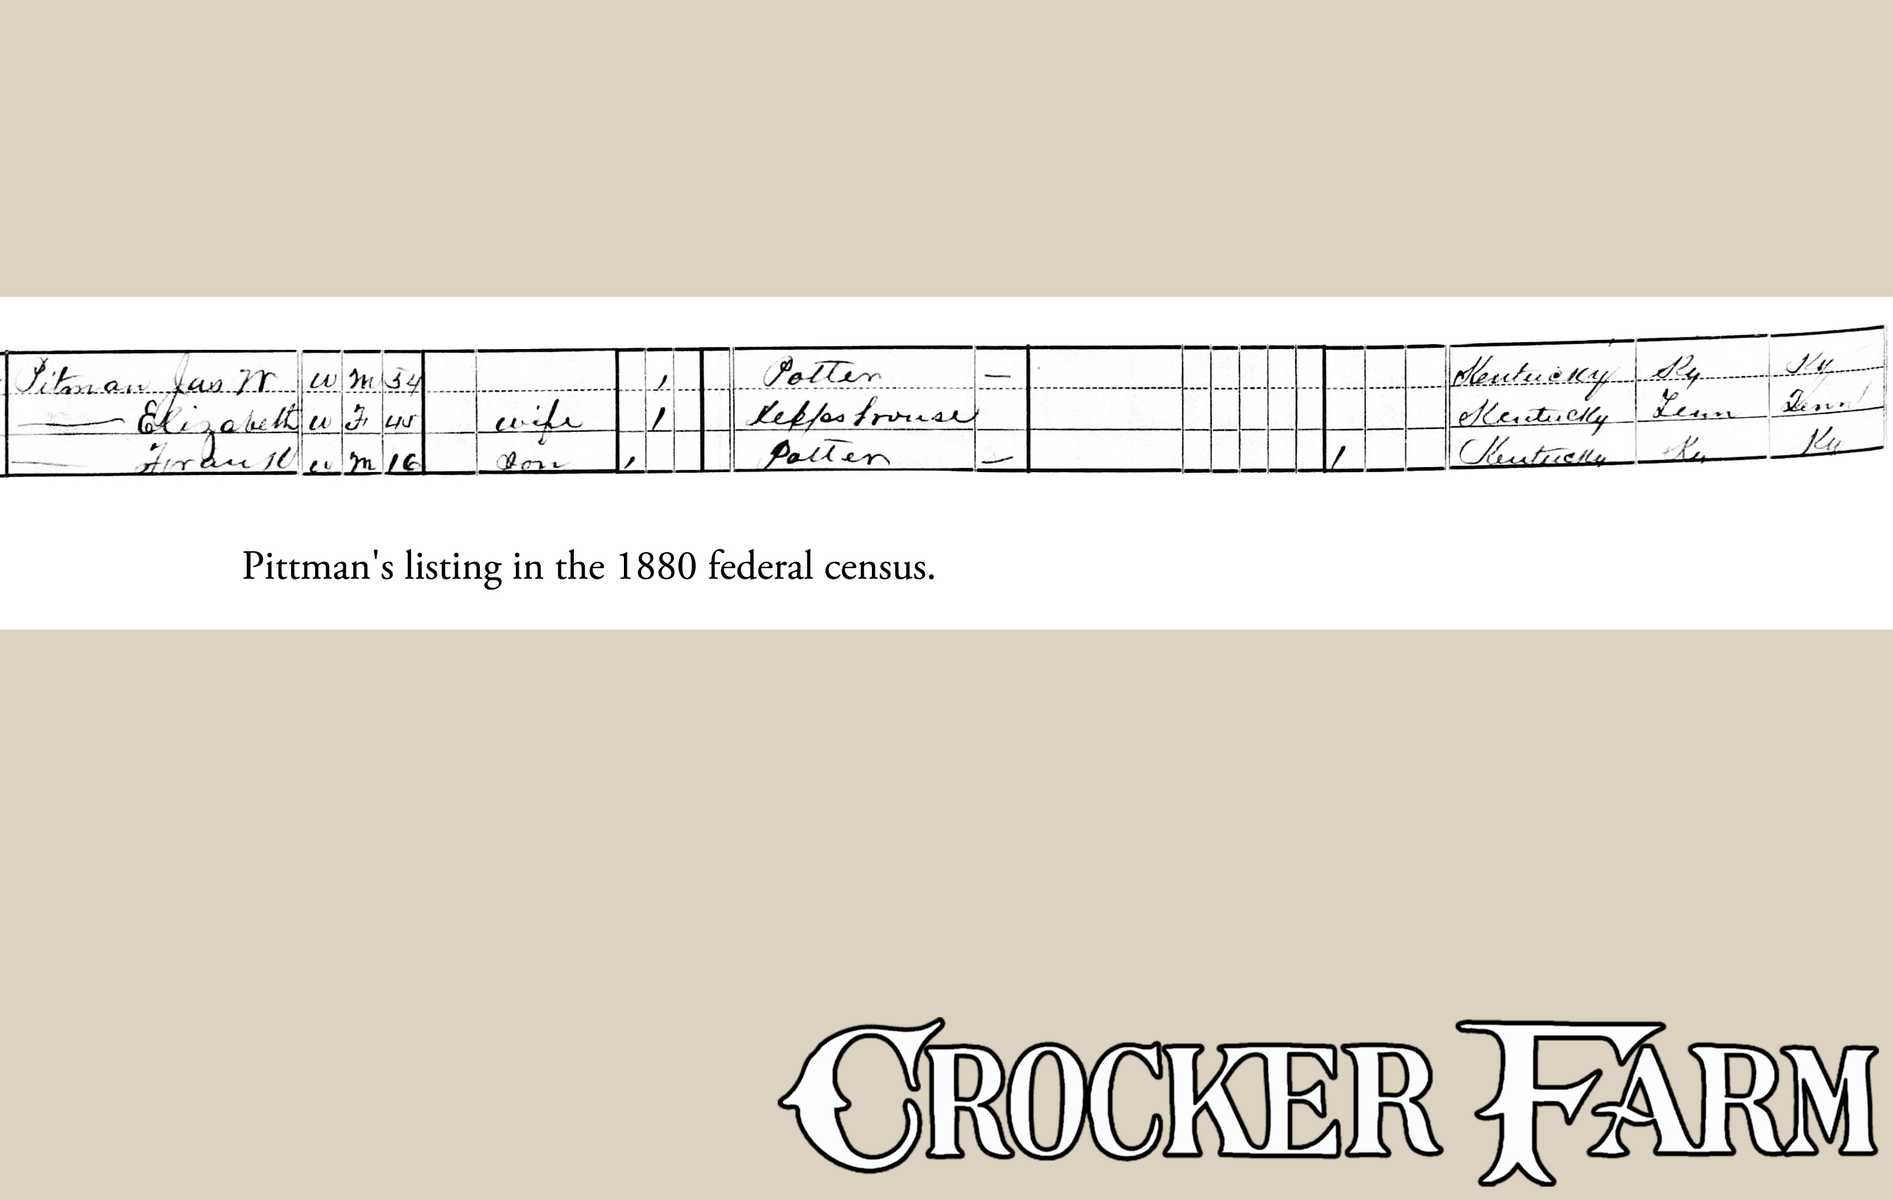 Pitman Jas W W M 54 , Potter — Kentucky Ky Ky
— Elizabeth W F 45 wife 1 Keeps house Kentucky Tenn Tenn
— W M 16 Son , Potter — 1 Kentucky Ky Ky
Pittman's listing in the 1880 federal census.
CROCKER FARM